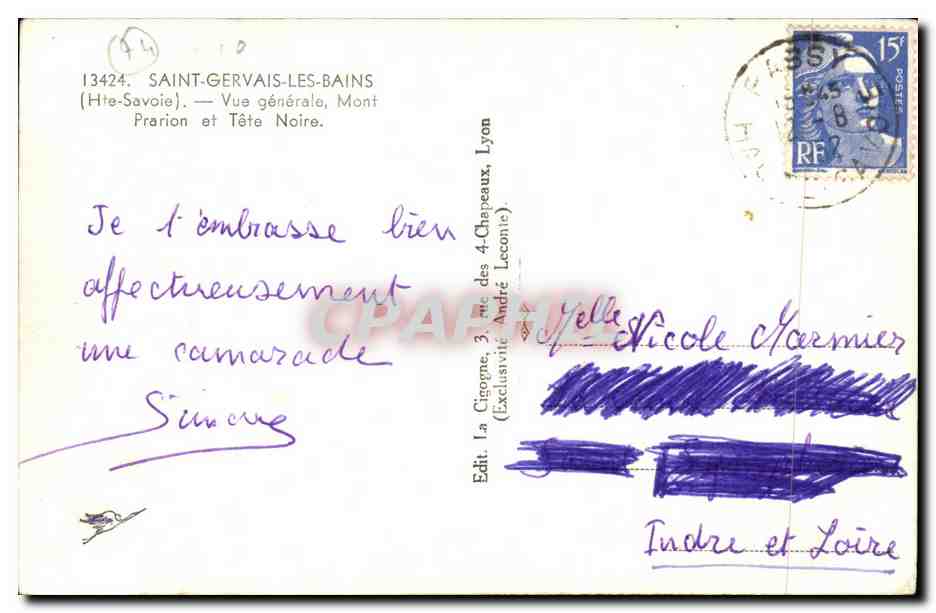 74
13424. SAINT-GERVAIS-LES-BAINS
(Hte-Savoie). — Vue générale, Mont
Prarion et Tête Noire.
Je t'embrasse bien
affectueusement
une camarade
Simone
Edit. La Cigogne, 3, rue des 4-Chapeaux, Lyon
(Exclusivité André Leconte).
CPAPHIL
15F
POSTES
RF
PASSY
HTE SAVOIE
Melle Nicole Marmier
Indre et Loire